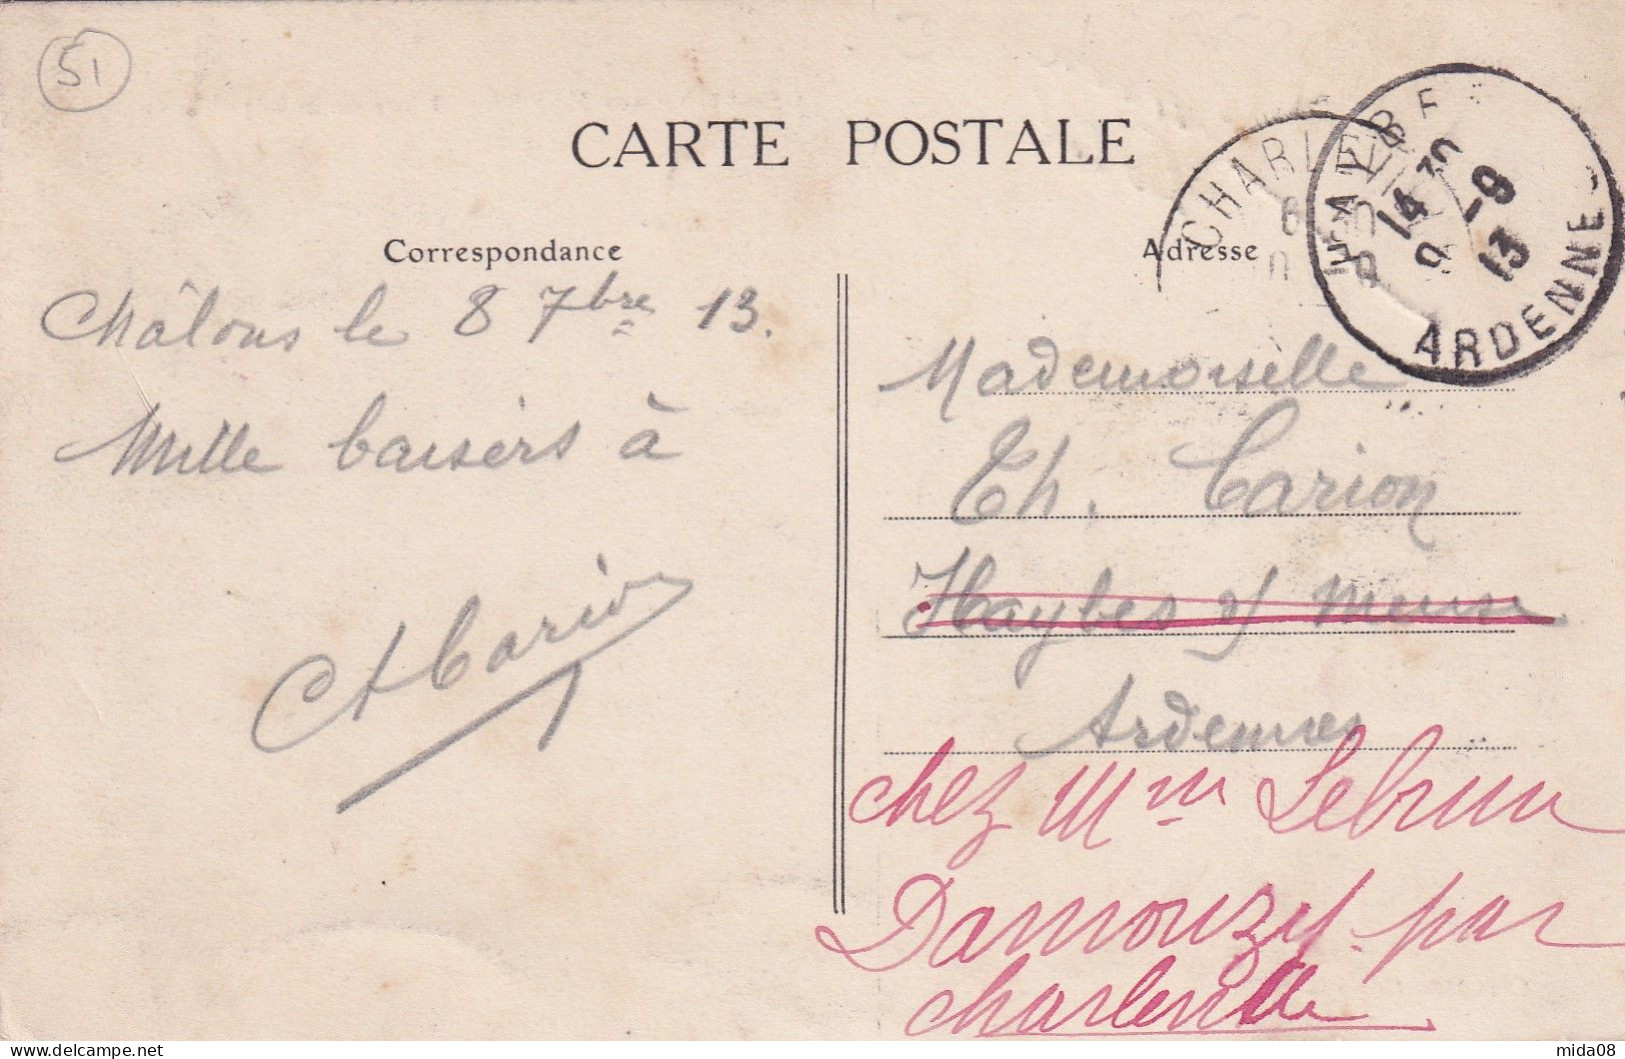 51
CARTE POSTALE
Correspondance
Adresse
CHARLEVILLE
HAYBES
14 30
9 -9
13
ARDENNES
Châlons le 8 7bre 13.
Mille baisers à
Mademoiselle
Th. Carion
Haybes s/ Meuse
Ardennes
chez Mme Lebrun
Damouzy par
Charleville
mida08